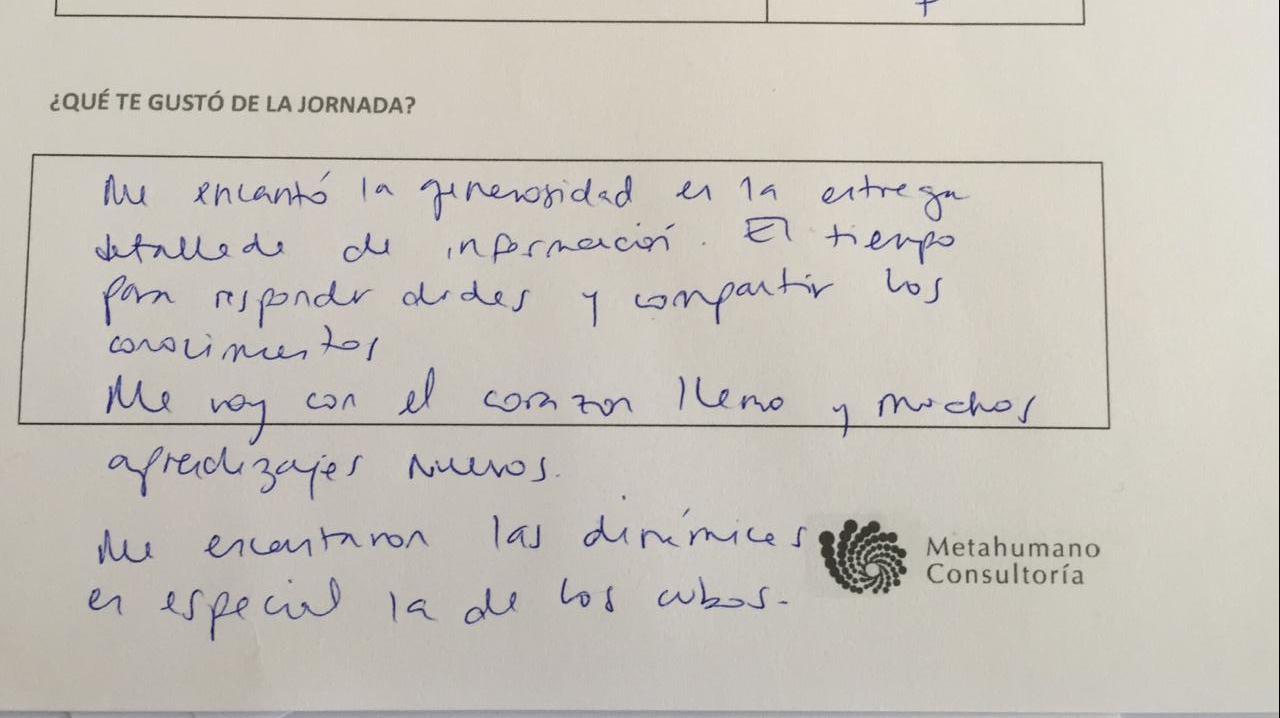 ¿QUÉ TE GUSTÓ DE LA JORNADA?
Me encantó la generosidad en la entrega
detallada de información. El tiempo
para responder dudas y compartir los
conocimientos
Me voy con el corazon lleno y muchos
aprendizajes nuevos.
Me encantaron las dinámicas
en especial la de los cubos.
Metahumano
Consultoría